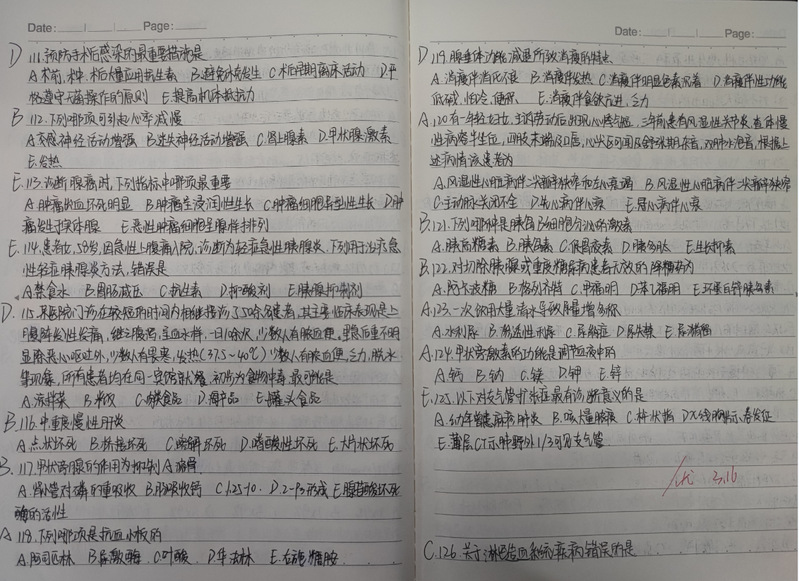 Date: Page:
D 111.预防手术后感染的最重要措施是
A.术前,术中,术后大量应用抗生素 B.避免休克发生 C.术后早期离床活动 D.严
格遵守无菌操作的原则 E.提高机体抵抗力
B 112.下列哪项可引起心率减慢
A.交感神经活动增强 B.迷走神经活动增强 C.肾上腺素 D.甲状腺激素
E.发热
E.113.诊断腺癌时,下列指标中哪项最重要
A.肿瘤出血坏死明显 B.肿瘤呈浸润性生长 C.肿瘤细胞异型性生长 D.肿
瘤发生于实体腺 E.恶性肿瘤细胞呈腺样排列
E.114.患者女,50岁,因急性上腹痛入院,诊断为轻症急性胰腺炎,下列用于治疗急
性轻症胰腺炎方法,错误是
A.禁食水 B.胃肠减压 C.抗生素 D.抑酸剂 E.胰腺抑制剂
D.115.某医院门诊在较短时间内相继接诊了50余患者,其主要临床表现是上
腹阵发性绞痛,继之腹泻,呈血水样,一日10余次,少数人有脓血便,里急后重不明
显除恶心呕吐外,少数人有畏寒,发热(37.5~40℃)少数人有脓血便,乏力,脱水
等现象,所有患者均在同一宾馆就餐,初步为食物中毒最可能是
A.凉拌菜 B.米饭 C.肉类食品 D.海产品 E.罐头食品
B.116.中重度慢性肝炎
A.点状坏死 B.桥接坏死 C.溶解坏死 D.嗜酸性坏死 E.大片状坏死
B.117.甲状旁腺的作用为抑制 A.溶骨
A.肾小管对磷的重吸收 B.肠吸收钙 C.1,25-
的活性
A 118.下列哪项是抗血小板的
A.阿司匹林 B.尿激酶 C.叶酸 D.华法林 E.右旋糖酐
Date: Page:
D 119.腺垂体功能减退所致消瘦的特点
A.消瘦伴消化不良 B.消瘦伴发热 C.消瘦伴明显色素沉着 D.消瘦伴性功能
低减,怕冷,便秘 E.消瘦伴食欲亢进,乏力
A.120.有一年轻女士,主诉劳动后出现心悸气短,
A.风湿性心脏病伴二尖瓣狭窄和左心衰竭 B.风湿性心脏病伴二尖瓣狭窄
C.主动脉关闭不全 D.左心病伴心衰 E.冠心病伴心衰
B.121.下列哪种是胰岛B细胞分泌的激素
A.胰高糖素 B.胰岛素 C.促胃液素 D.胰多肽 E.生长抑素
B.122.对切除胰腺或重度糖尿病患者无效的降糖药为
A.阿卡波糖 B.格列齐特 C.甲福明 D.苯乙福明 E.环星白锌胰岛素
A.123.一次饮用大量清水导致尿量增多称
A.水利尿 B.渗透性利尿 C.尿崩症 D.尿失禁 E.尿潴留
A.124.甲状旁腺素的功能是调节血液中的
A.钙 B.钠 C.镁 D.钾 E.锌
E.125.以下对支气管扩张症最有诊断意义的是
A.幼年曾患麻疹肺炎 B.咳大量脓痰 C.杵状指 D.X线胸片示卷发征
E.薄层CT示肺野外1/3可见支气管
优 3.16
C.126.关于淋巴造血系统疾病错误的是